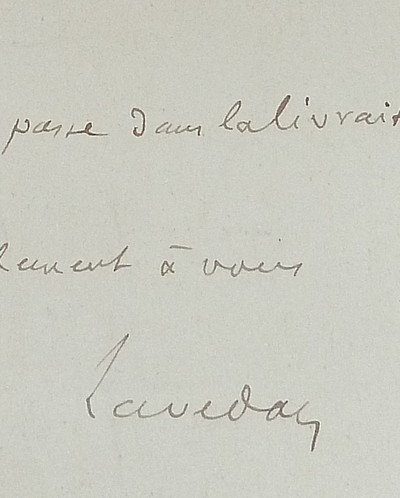 passe dans la livrais
à vous
Lavedan